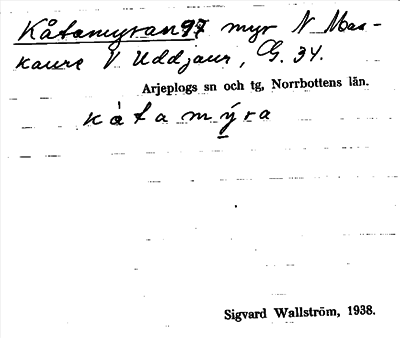 Kåtamyran 97 myr N Mas-
kaure V Uddjaur, G. 34.
Arjeplogs sn och tg, Norrbottens län.
kåtamýra
Sigvard Wallström, 1938.